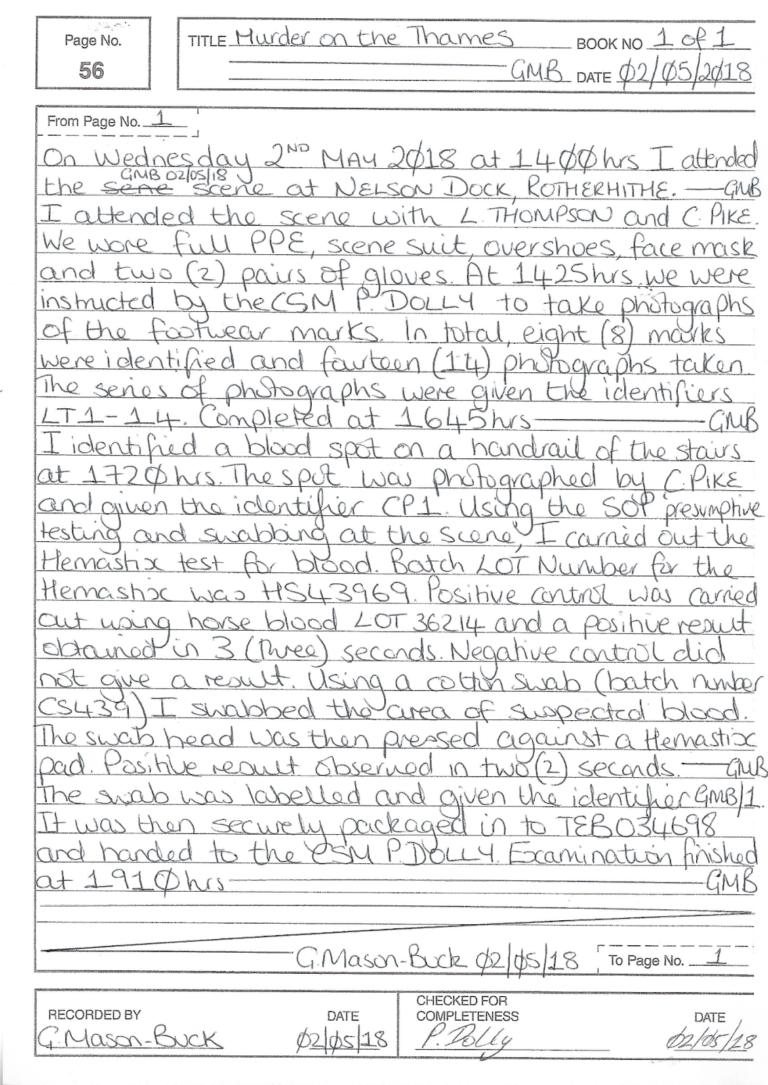 Page No.
56
TITLE Murder on the Thames
BOOK NO 1 of 1
GMB DATE 02/05/2018
From Page No. 1
On Wednesday 2ND MAY 2018 at 1400hrs I attended
GMB 02/05/18
the sene scene at NELSON DOCK, ROTHERHITHE. —GMB
I attended the scene with L.THOMPSON and C.PIKE.
We wore full PPE, scene suit, overshoes, face mask
and two (2) pairs of gloves. At 1425hrs, we were
instructed by the CSM P. DOLLY to take photographs
of the footwear marks. In total, eight (8) marks
were identified and fourteen (14) photographs taken.
The series of photographs were given the identifiers
LT1-14. Completed at 1645hrs —GMB
I identified a blood spot on a handrail of the stairs
at 1720hrs. The spot was photographed by C.PIKE
and given the identifier CP1. Using the SOP 'presumptive
testing and swabbing at the scene', I carried out the
Hemastix test for blood. Batch LOT Number for the
Hemastix was HS43969. Positive control was carried
out using horse blood LOT 36214 and a positive result
obtained in 3 (three) seconds. Negative control did
not give a result. Using a cotton swab (batch number
CS439) I swabbed the area of suspected blood.
The swab head was then pressed against a Hemastix
pad. Positive result observed in two (2) seconds. —GMB
The swab was labelled and given the identifier GMB/1.
It was then securely packaged in to TEB034698
and handed to the CSM P.DOLLY. Examination finished
at 1910hrs —GMB
G.Mason-Buck 02/05/18
To Page No. 1
RECORDED BY
G.Mason-Buck
DATE
02/05/18
CHECKED FOR
COMPLETENESS
P. Dolly
DATE
02/05/18